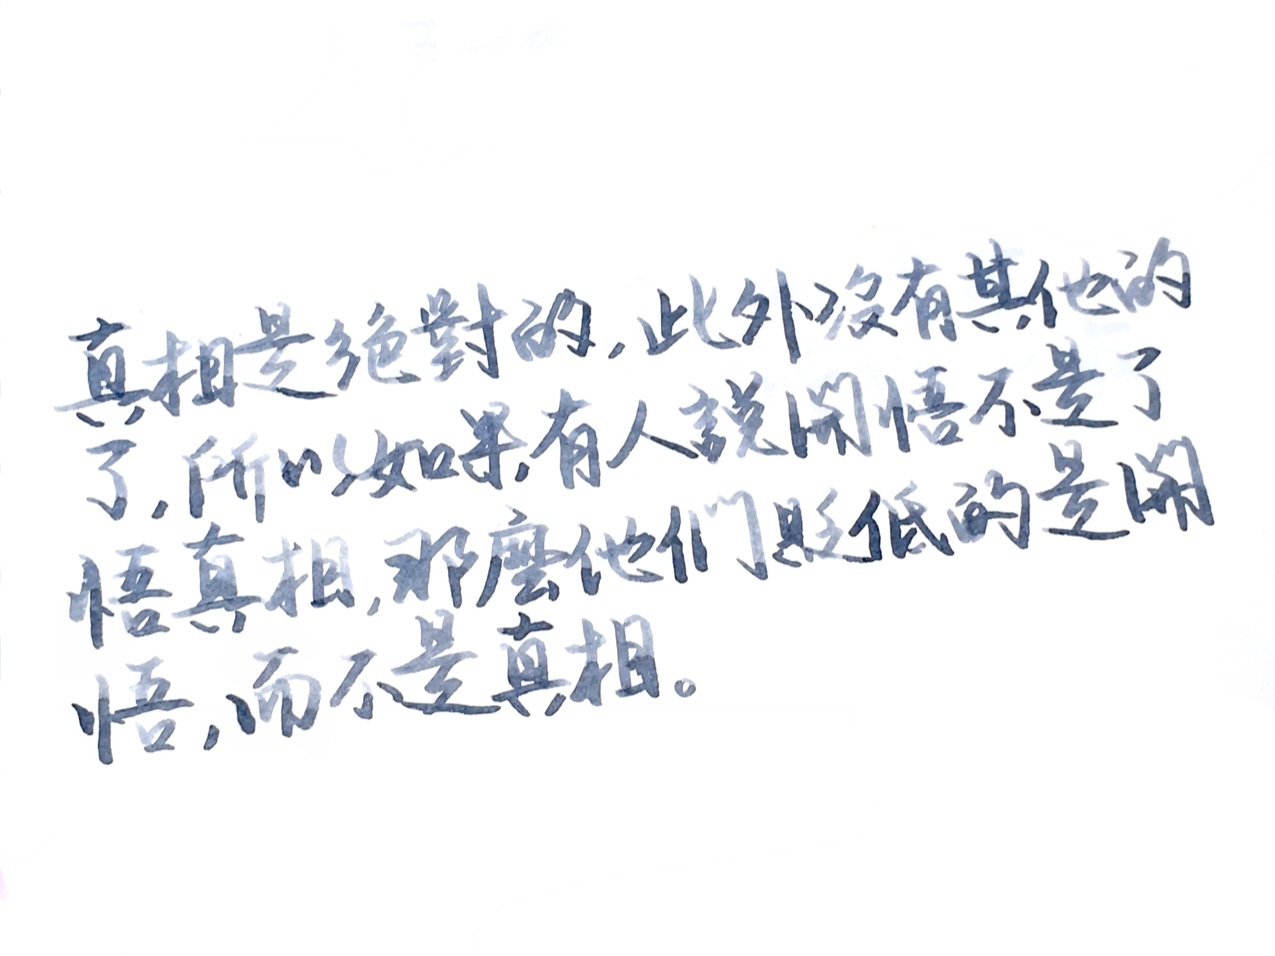 真相是絕對的,此外沒有其他的
了,所以如果有人說開悟不是了
悟真相,那麼他們貶低的是開
悟,而不是真相。